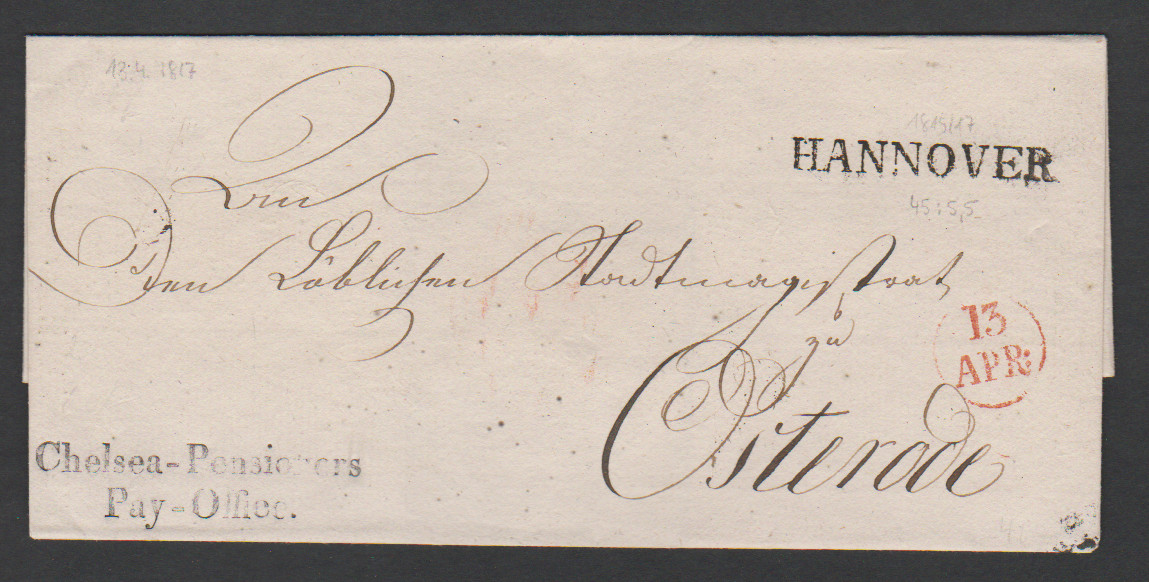 13.4. 1817
1815/17
HANNOVER
45:5,5
An
Den Löblichen Stadtmagistrat
zu
Osterode
13
APR:
Chelsea-Pensioners
Pay-Office.